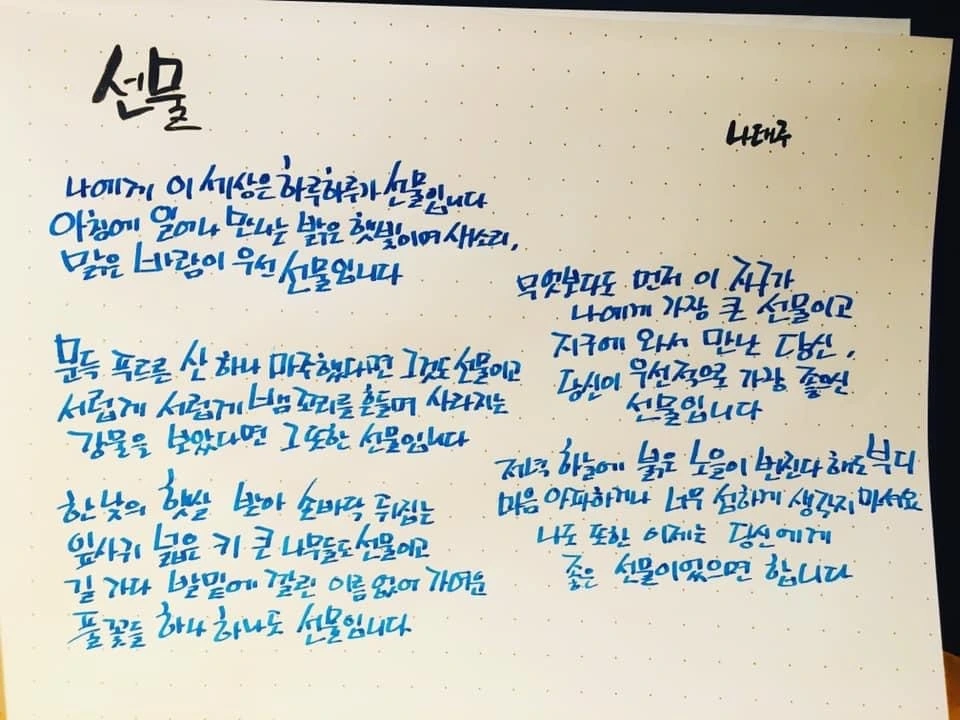 선물
나태주
나에게 이 세상은 하루하루가 선물입니다
아침에 일어나 만나는 밝은 햇빛이며 새소리,
맑은 바람이 우선 선물입니다
문득 푸르른 산 하나 마주했다면 그것도 선물이고
서럽게 서럽게 뱀꼬리를 흔들며 사라지는
강물을 보았다면 그 또한 선물입니다
한낮의 햇살 받아 손바닥 뒤집는
잎사귀 넓은 키 큰 나무들도 선물이고
길 가다 발밑에 깔린 이름 없어 가여운
풀꽃들 하나 하나도 선물입니다
무엇보다도 먼저 이 지구가
나에게 가장 큰 선물이고
지구에 와서 만난 당신,
당신이 우선적으로 가장 좋으신
선물입니다
저녁 하늘에 붉은 노을이 번진다 해도 부디
마음 아파하거나 너무 섭하게 생각지 마셔요
나도 또한 이제는 당신에게
좋은 선물이었으면 합니다